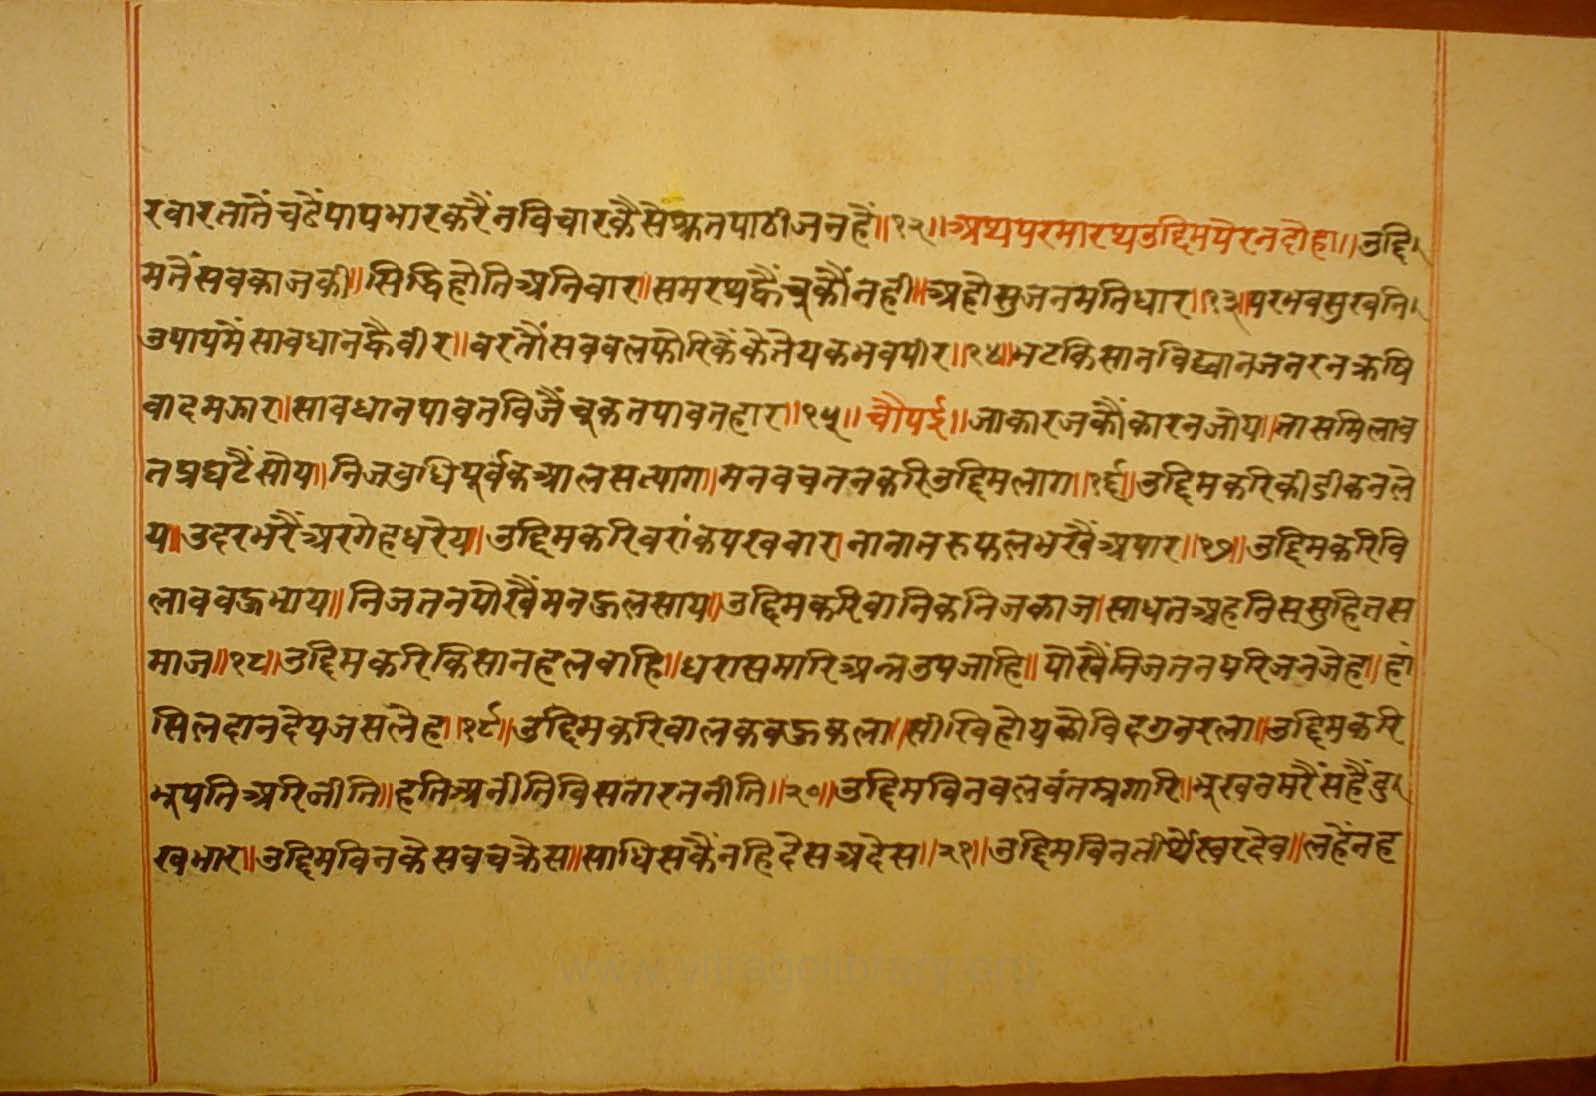 रवारतातैंचढैंपापभारकरैंनविचारकैसेंश्रुतपाठीजनहैं॥१२॥अथपरमारथउद्दिमप्रेरनदोहा॥उद्दि
मतैंसवकाजकी॥सिद्धिहोतिअनिवार॥समरथह्वैंचूकौंनही॥अहोसुजनमतिधार॥१३॥परभवसुखनि
उपायमेंसावधानह्वैवीर॥वरतौंसववलफोरिकेंकेतेयकभवपीर॥१४॥भटकिसानविद्वानजनरनक्रषि
वादमझार॥सावधानपावतविजैंचूकतपावतहार॥१५॥चौपई॥जाकारजकौंकारनजोय॥तासमिलाव
तप्रघटैंसोय॥निजवुधिपूर्वकआलसत्याग॥मनवचतनकरिउद्दिमलाग॥१६॥उद्दिमकरिकीडीकनले
य॥उदरभरैंअरगेहधरेय॥उद्दिमकरिवरांकेपखवार।नानातरुफलभखैंअपार॥१७॥उद्दिमकरिवि
लाववहुभाय॥निजतनपोखैंमनहुलसाय॥उद्दिमकरिवानिकनिजकाज।साधतअहनिससुहितस
माज॥१८॥उद्दिमकरिकिसानहलवाहि॥धरासमारिअन्नउपजाहि॥पोखैंनिजतनपरिजनजेह॥हां
सिलदानदेयजसलेह॥१९॥उद्दिमकरिवालकवहुकला॥सीखिहोयकोविदगुनरला॥उद्दिमकरि
भूपतिअरिजीति॥हतिअनीतिविसतारतनीति॥२०॥उद्दिमविनवलवंतम्रगारि॥भूखनमरैंसहैंदु
खभार॥उद्दिमविनकेसवचक्रेस॥साधिसकैंनहिदेसअदेस॥२१॥उद्दिमविनतीर्थेस्वरदेव॥लहेंनह
www.vitragelibrary.org